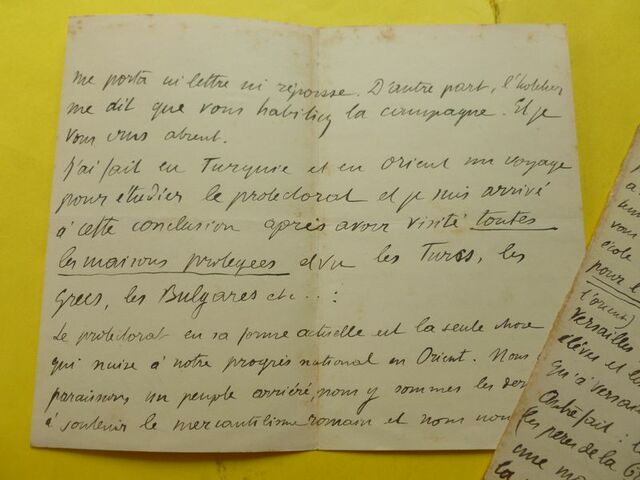 me porta ni lettre ni réponse. D'autre part, l'hotelier
me dit que vous habitiez la campagne. Et je
vous crus absent.
J'ai fait en Turquie et en Orient un voyage
pour étudier le protectorat et je suis arrivé
à cette conclusion après avoir visité toutes
les maisons protégées et vu les Turcs, les
Grecs, les Bulgares etc...:
Le protectorat en sa forme actuelle est la seule chose
qui nuise à notre progrès national en Orient. Nous
paraissons un peuple arriéré, nous y sommes les der
à soutenir le mercantilisme romain et nous nou
vous
école
pour l
l'orient)
Versailles
élèves et l
qu'à versa
Autre fait : l
les pères de la
une ma
la